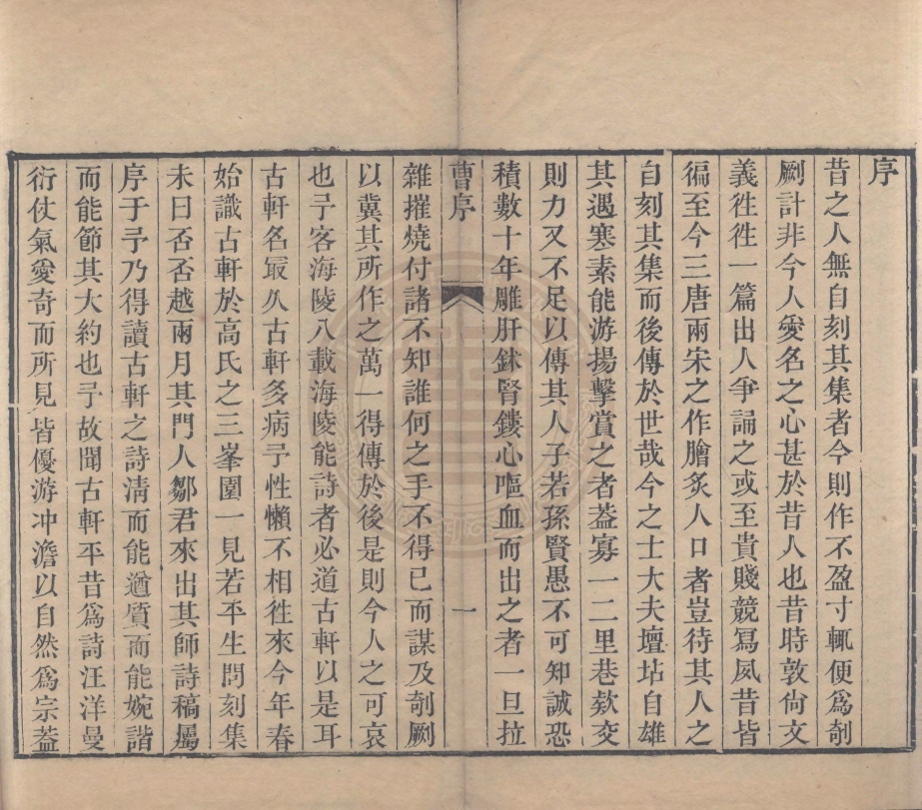 序
昔之人無自刻其集者今則作不盈寸輒便爲剞
劂計非今人愛名之心甚於昔人也昔時敦尙文
義徃徃一篇出人爭誦之或至貴賤競冩夙昔皆
徧至今三唐兩宋之作膾炙人口者豈待其人之
自刻其集而後傳於世哉今之士大夫壇坫自雄
其遇寒素能游揚擊賞之者葢寡一二里巷欵交
則力又不足以傳其人子若孫賢愚不可知誠恐
積數十年雕肝鉥腎鏤心嘔血而出之者一旦拉
曹序
一
雜摧燒付諸不知誰何之手不得已而謀及剞劂
以冀其所作之萬一得傳於後是則今人之可哀
也予客海陵八載海陵能詩者必道古軒以是耳
古軒名最久古軒多病予性懶不相徃來今年春
始識古軒於高氏之三峯園一見若平生問刻集
未曰否否越兩月其門人鄒君來出其師詩稿屬
序于予乃得讀古軒之詩淸而能遒質而能婉諧
而能節其大約也予故聞古軒平昔爲詩汪洋曼
衍仗氣愛奇而所見皆優游冲澹以自然爲宗葢